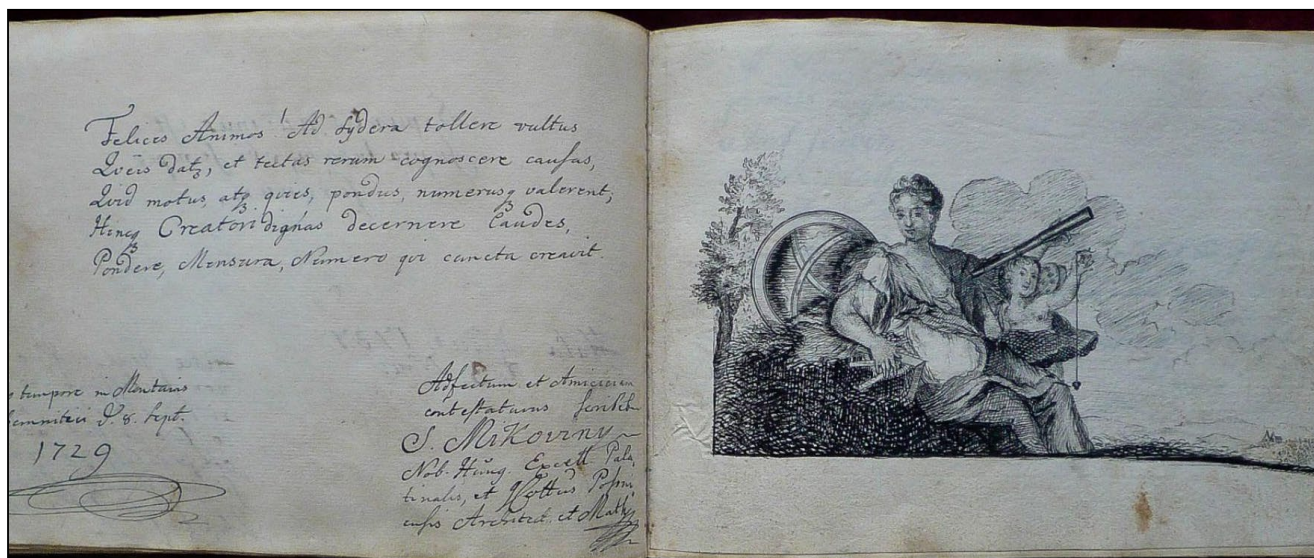 Felices Animos! Ad sydera tollere vultus
Qveis datꝫ, et tectas rerum cognoscere causas,
Qvid motus, atqꝫ qvies, pondus, numerusqꝫ valerent,
Hincqꝫ Creatori dignas decernere laudes,
Pondere, Mensura, Numero qvi cuncta creavit.
tempore in Montanis
d. 8. Sept.
1729
Adfectum et Amicitiam
contestaturus scribeb
S. Mikoviny
Nob. Hung. Excell. Pala
tinalis, et Poson
ensis Architect. et Math